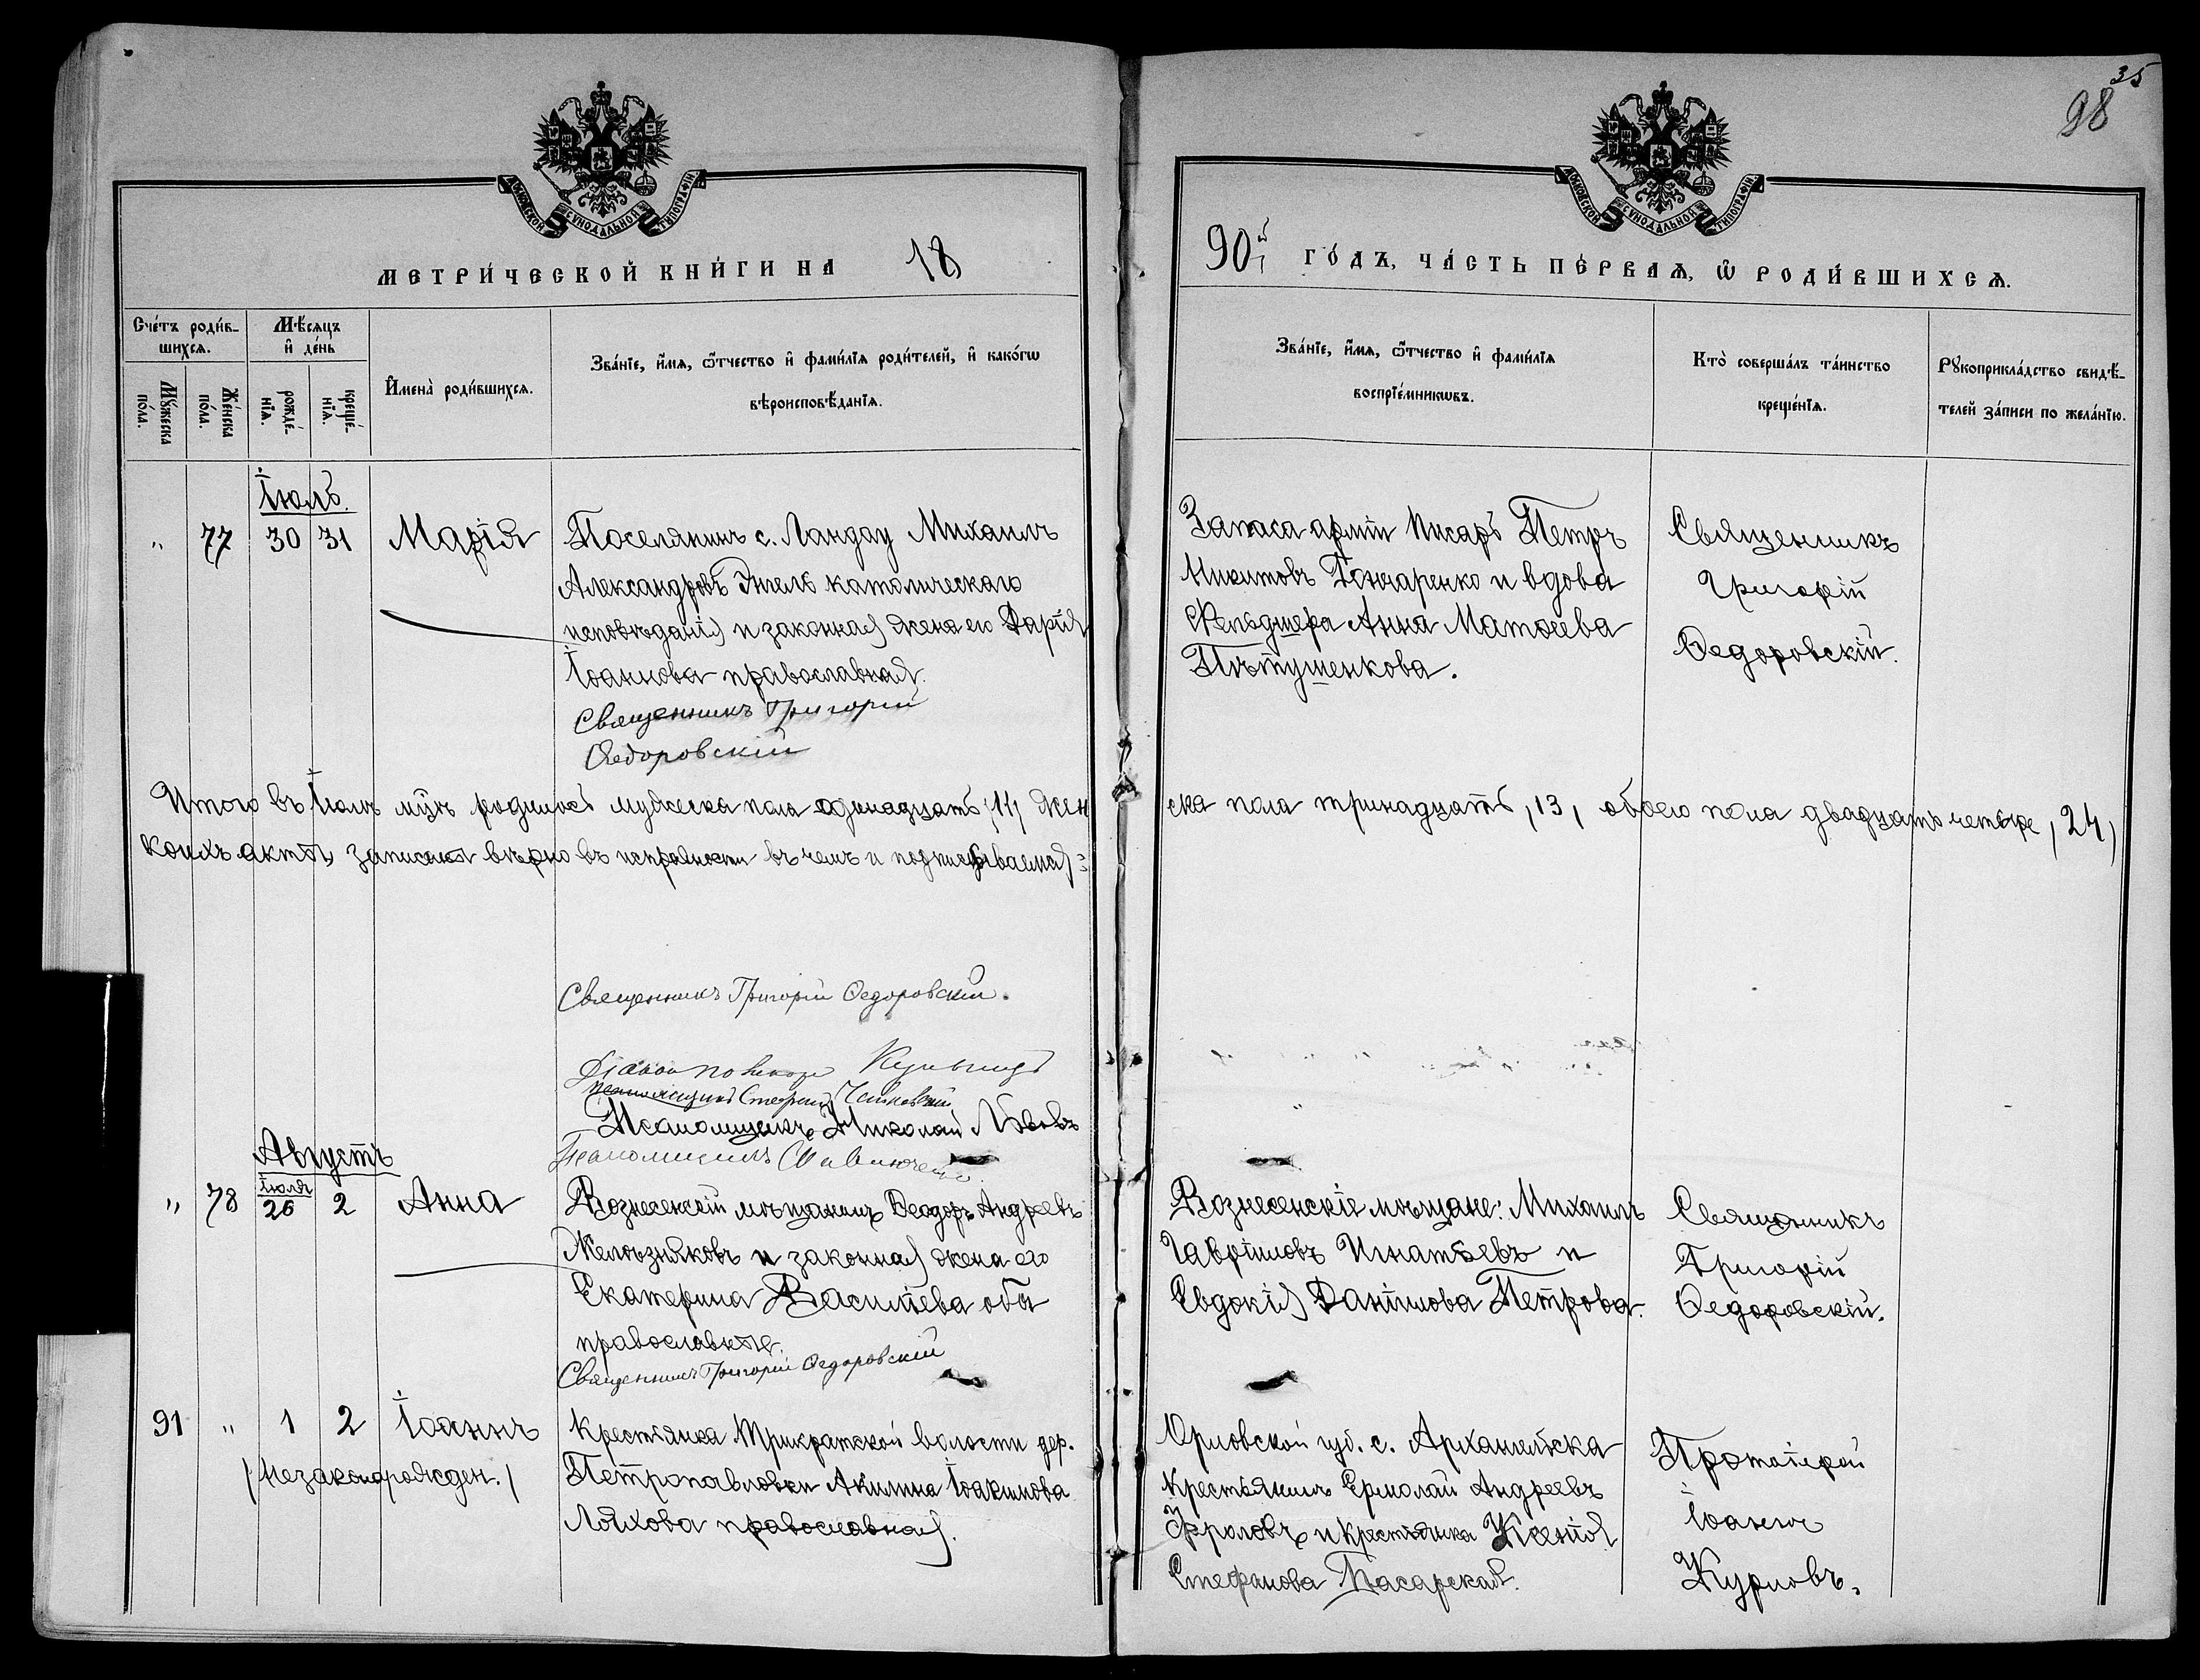 35
98
МОСКОВСКОЙ СУНОДАЛЬНОЙ ТИПОГРАФІИ
МОСКОВСКОЙ СУНОДАЛЬНОЙ ТИПОГРАФІИ
МЕТРИ́ЧЕСКОЙ КНИ́ГИ НА 18
90й ГО́ДЪ, ЧА́СТЬ ПЕ́РВАѦ, Ѽ РОДИ́ВШИХСѦ.
Сче́тъ роди́в-
шихсѧ.
Мꙋ́жеска
по́ла.
Же́нска
по́ла.
Мѣ́сѧцъ
и҆ де́нь
рожде́-
нїѧ.
креще́-
нїѧ.
И҆мена̀ роди́вшихсѧ.
Зва́нїе, и҆́мѧ, ѻ҆́тчество и҆ фами́лїѧ роди́телей, и҆ како́гѡ
вѣроисповѣ́данїѧ.
Зва́нїе, и҆́мѧ, ѻ҆́тчество и҆ фами́лїѧ
воспрїе́мникѡвъ.
Кто̀ соверша́лъ та́инство
креще́нїѧ.
Рꙋкоприкла́дство свидѣ́-
телей за́писи по жела́нїю.
Іюль.
" 77 30 31 Марія
Поселянинъ с. Ландау Михаилъ
Александровъ Энгель католическаго
исповѣданія и законная жена его Дарія
Іоаннова православная.
Священникъ Григорій
Ѳедоровскій
Запаса арміи писарь Петръ
Никитовъ Гончаренко и вдова
Фельдшера Анна Матѳеева
Пѣтушенкова.
Священникъ
Григорій
Ѳедоровскій.
Итого въ Іюлѣ м҃цѣ родилось мужеска пола одинадцать /11/ жен
ска пола тринадцать, 13, обоего пола двадцать четыре, 24,
коихъ акты записаны вѣрно въ исправности въ чемъ и подписываемся:
Священникъ Григорій Ѳедоровскій.
Псаломщикъ
Псаломщикъ Николай Львовъ
Псаломщикъ
Августъ
" 78 Іюля 26 2 Анна
Вознесенскій мѣщанинъ Ѳеодоръ Андреевъ
Желѣзняковъ и законная жена его
Екатерина Василіева оба
православные.
Священникъ Григорій Ѳедоровскій
Вознесенскіе мѣщане: Михаилъ
Гавріиловъ Игнатьевъ и
Евдокія Даніилова Петрова.
Священникъ
Григорій
Ѳедоровскій.
91 " 1 2 Іоаннъ
/незаконорожден./
Крестьянка Трикратской волости дер.
Петропавловки Акилина Іоакимова
Ляхова православная.
Орловской губ. с. Архангельска
крестьянинъ Ермолай Андреевъ
Фроловъ и крестьянка Ксенія
Стефанова Басарская.
Протоіерей
Іоаннъ
Курловъ.